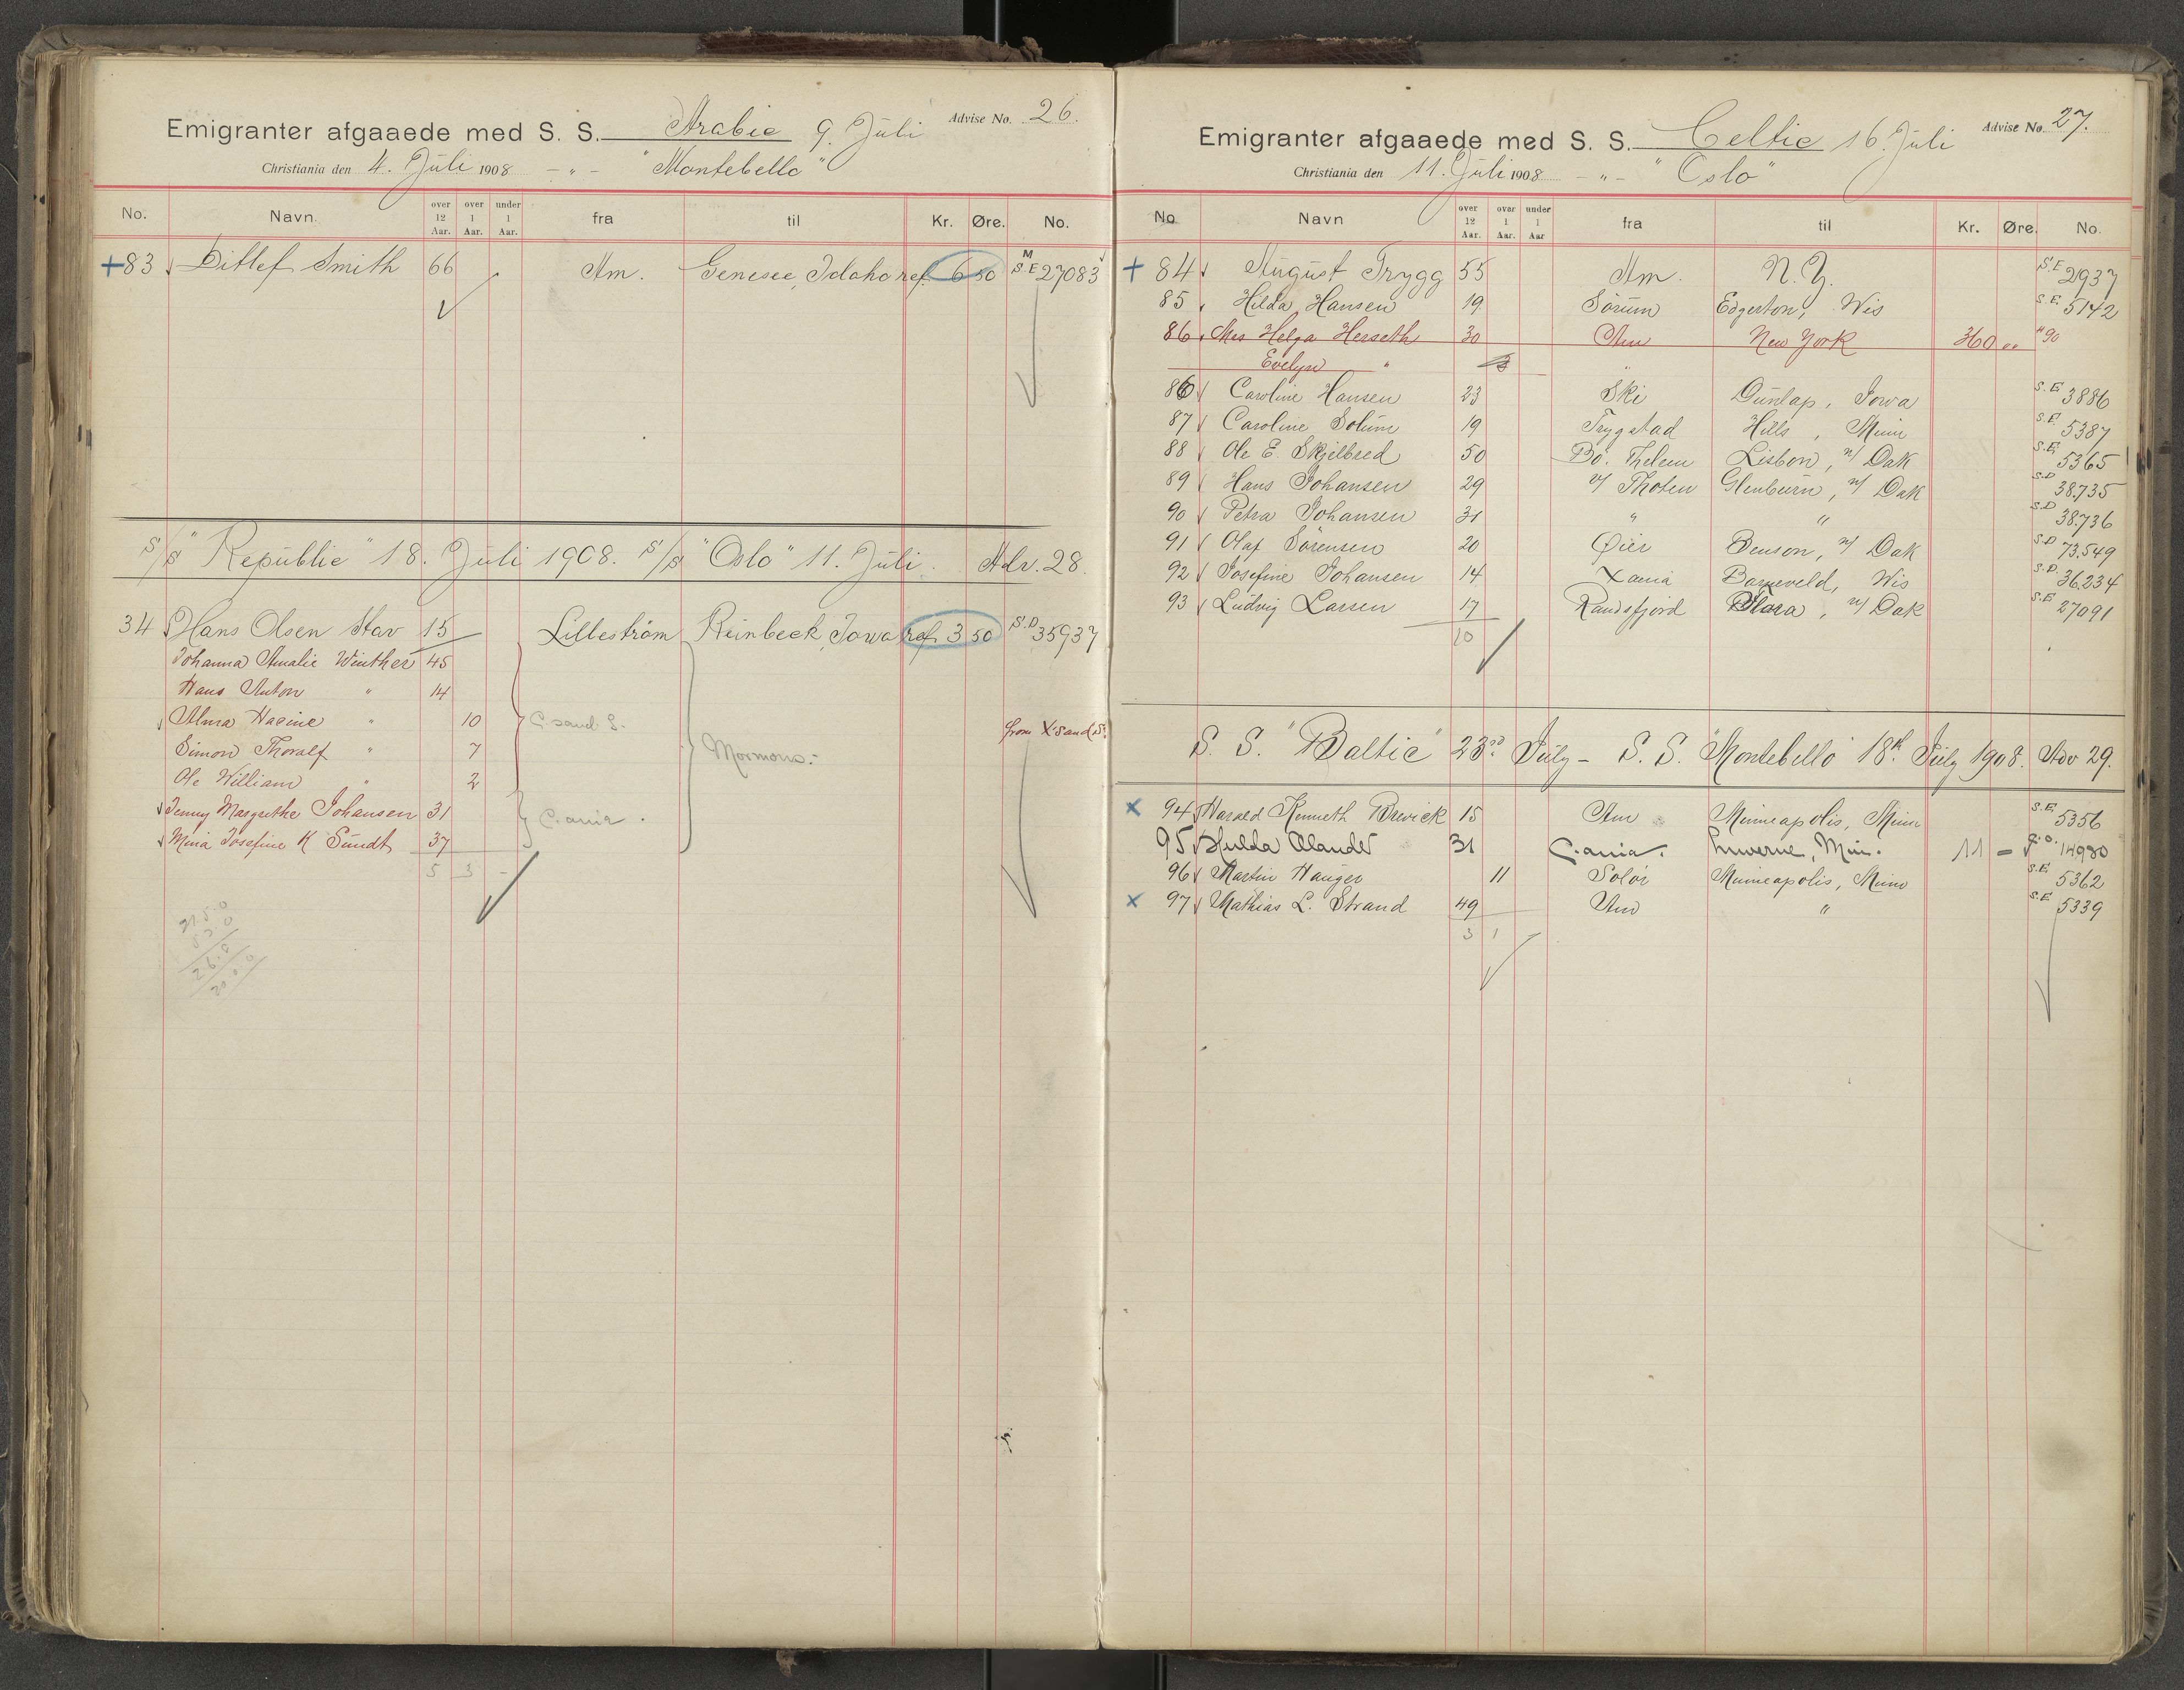 Emigranter afgaaede med S. S. Arabic 9. Juli Advise No. 26.
Christiania den 4. Juli 1908 - " - "Montebello"
No. Navn. over 12 Aar. over 1 Aar. under 1 Aar. fra til Kr. Øre. No.
+83 Ditlef Smith 66 Am. Genesee, Idaho ref. 6 50 M S.E 27083
S/S "Republic" 18. Juli 1908. S/S "Oslo" 11. Juli. Adv. 28.
34 Hans Olsen Hav 15 Lilleström Reinbeck, Iowa ref. 3 50 S.D 35937
Johanna Amalie Winther 45
Hans Anton " 14
Alma Hacine " 10 C.sand S. from X'sand S.
Simon Thoralf " 7 Mormons.-
Ole William " 2
Jenny Margrethe Johansen 31 C.ania.
Mina Josefine K Sundt 37
5 3 -
Emigranter afgaaede med S. S. Celtic 16. Juli Advise No. 27.
Christiania den 11. Juli 1908 - " - "Oslo"
No Navn over 12 Aar. over 1 Aar. under 1 Aar fra til Kr. Øre. No.
+ 84 August Trygg 55 Am. N.Y. S.E 2937
85 Hilda Hansen 19 Sörum Edgerton, Wis S.E. 5142
86 Mrs Helga Herseth 30 Am New York 360 00 " 90
Evelyn "
86 Caroline Hansen 23 Ski Dunlap, Iowa S.E. 3886
87 Caroline Solum 19 Trygstad Hills, Minn S.E. 5387
88 Ole E. Skjelbred 50 Bö. Thelem Lisbon, n/ Dak S.E. 5365
89 Hans Johansen 29 v/ Thoten Glenburn, n/ Dak S.D 38.735
90 Petra Johansen 31 " " S.D 38.736
91 Olaf Sörensen 20 Öier Benson, n/ Dak S.D 73.549
92 Josefine Johansen 14 Xania Barneveld, Wis S.D. 36.234
93 Ludvig Larsen 17 Randsfjord Flora, n/ Dak S.E 27091
10
S. S. "Baltic" 23rd July - S. S. "Montebello" 18th July 1908. Adv 29.
x 94 Harald Kenneth Brevick 15 Am Minneapolis, Minn S.E. 5356
95 Hulda Olander 31 C.ania. Luverne, Min. 11 - 14980
96 Martin Hauger 11 Solör Minneapolis, Minn S.E. 5362
x 97 Mathias L. Strand 49 Am " S.E. 5339
3 1 -